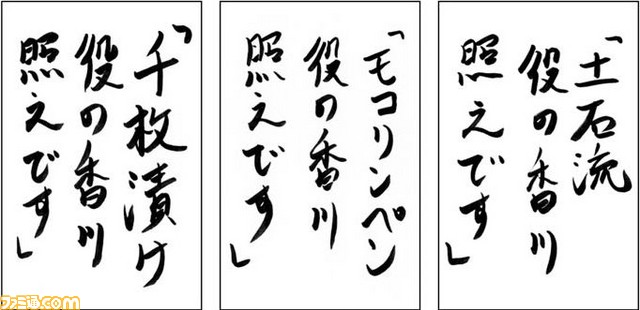 「土石流
役の香川
照えです」
「モコリンペン
役の香川
照えです」
「千枚漬け
役の香川
照えです」
ファミ通.com